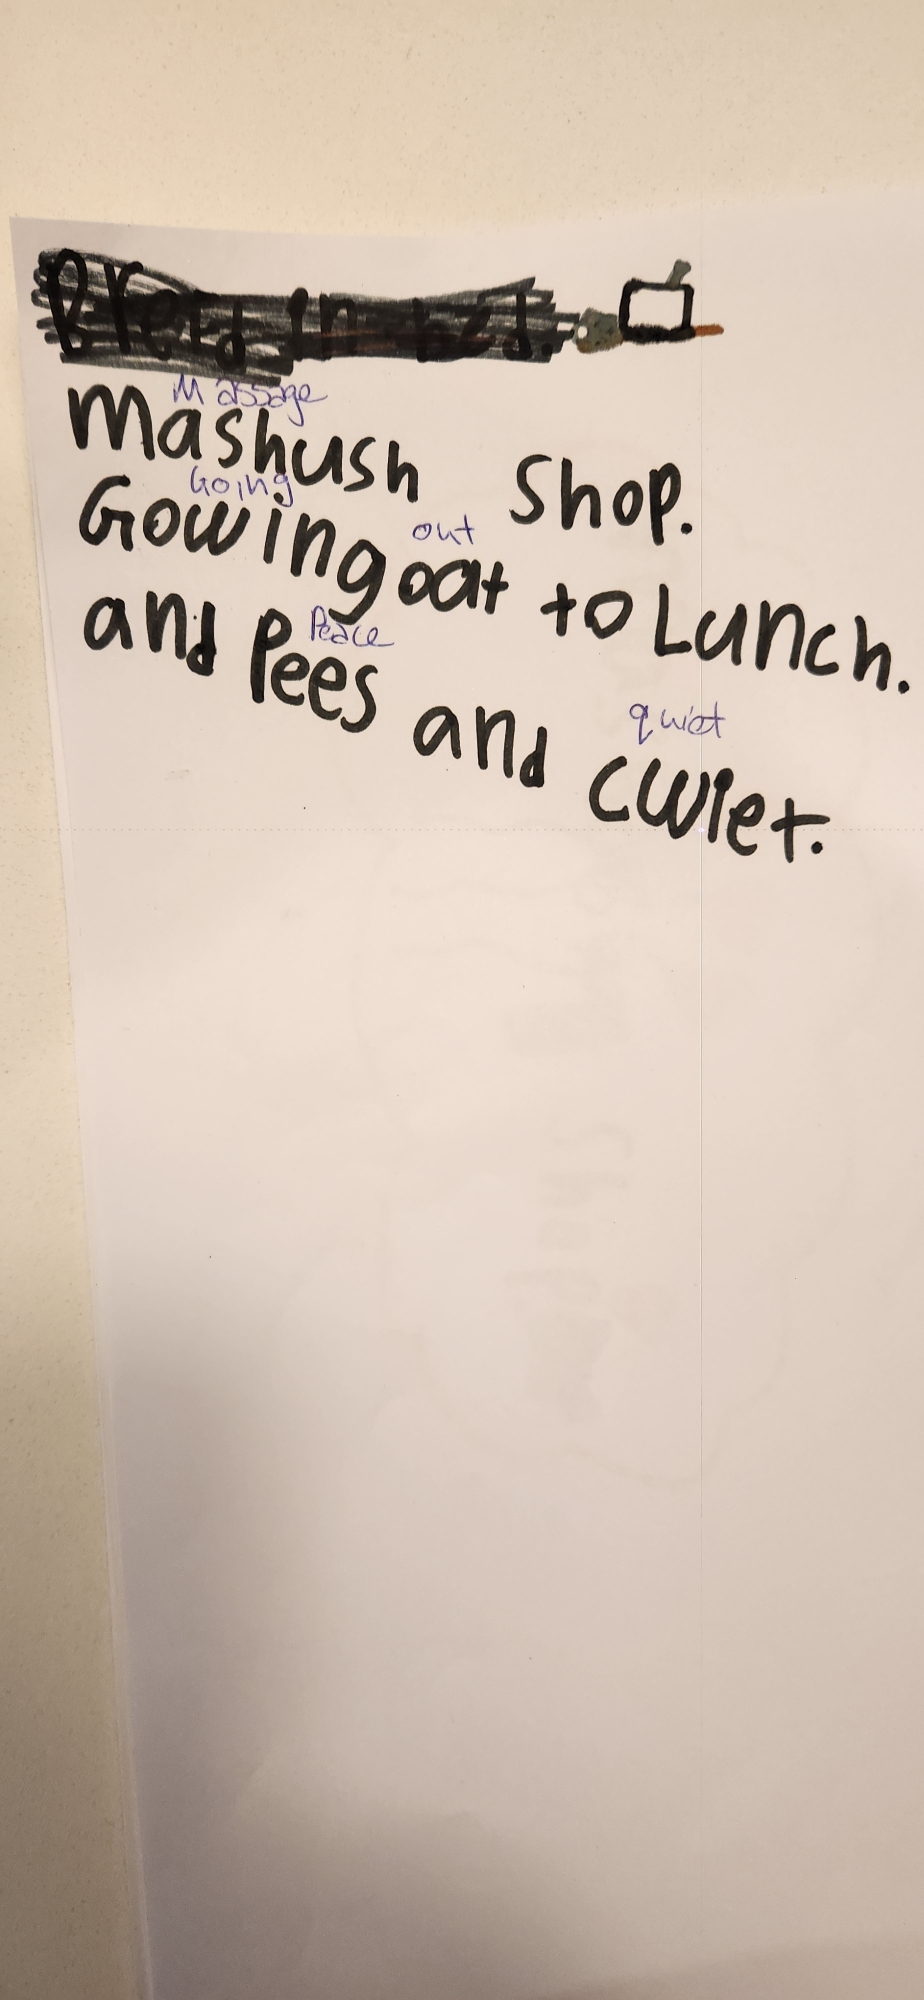 Massage
Mashush Shop.
Going out
Gowing oat to Lunch.
Peace
and Pees and
quiet
cwiet.